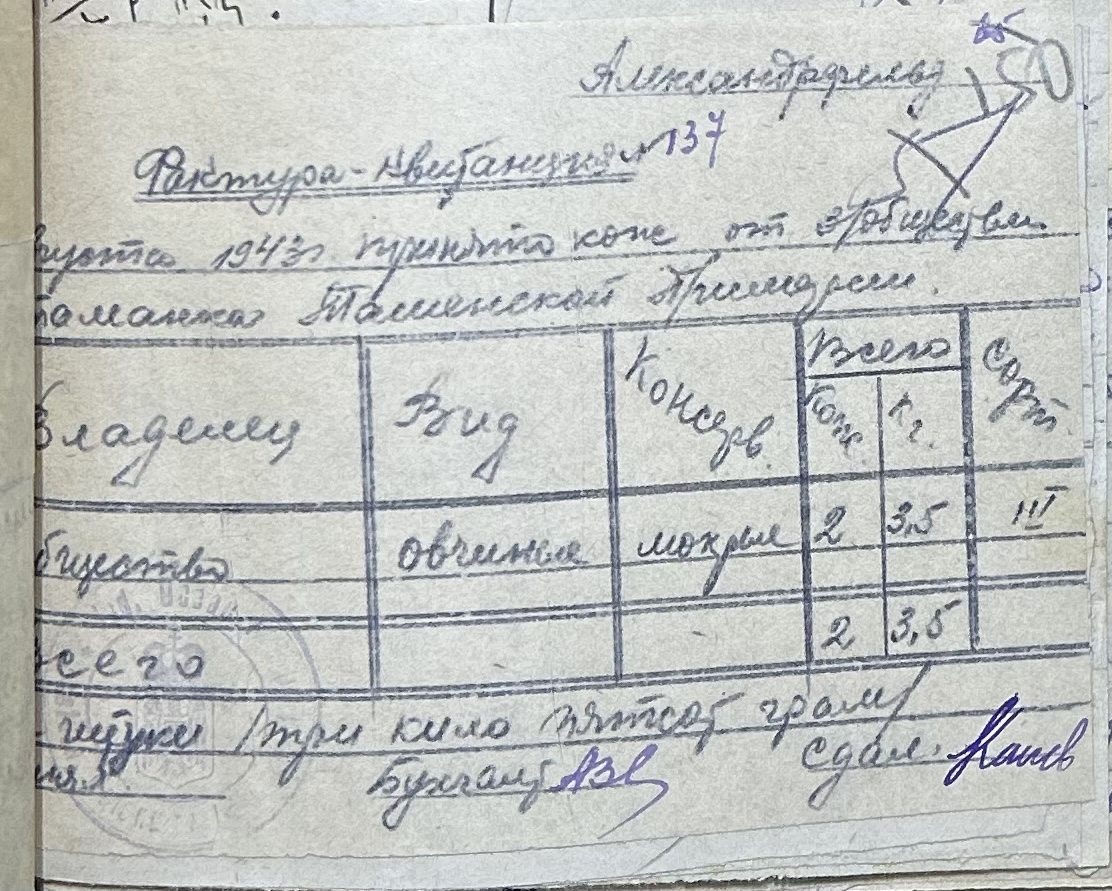 Александрфельд
Фактура-квитанция № 137
вгуста 1943г. принято кож от з/обществен
Ташенской Примэрии.
Владелец Вид Консерв. Всего Сорт.
Кож. кг.
бщество овчиные мокрые 2 3,5 III
сего 2 3,5
штуки /три кило пятсот грам/
Бухгалт. Сдал.